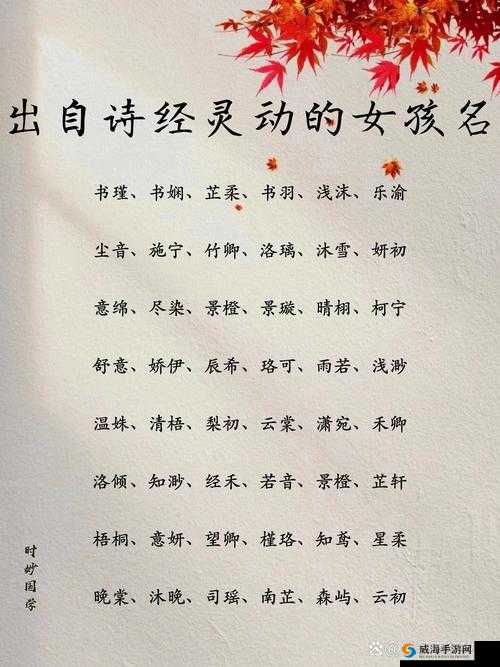 出自诗经灵动的女孩名
书瑾、书娴、芷柔、书羽、浅沫、乐渝
尘音、施宁、竹卿、洛璃、沐雪、妍初
意绵、尽染、景橙、景璇、晴栩、柯宁
舒意、娇伊、辰希、珞可、雨若、浅渺
温姝、清梧、梨初、云棠、潇宛、禾卿
洛倾、知渺、经禾、若音、景橙、芷轩
梧桐、意妍、望卿、槿珞、知鸢、星柔
晚棠、沐晚、司瑶、南芷、森屿、云初
时妙国学
威海手游网